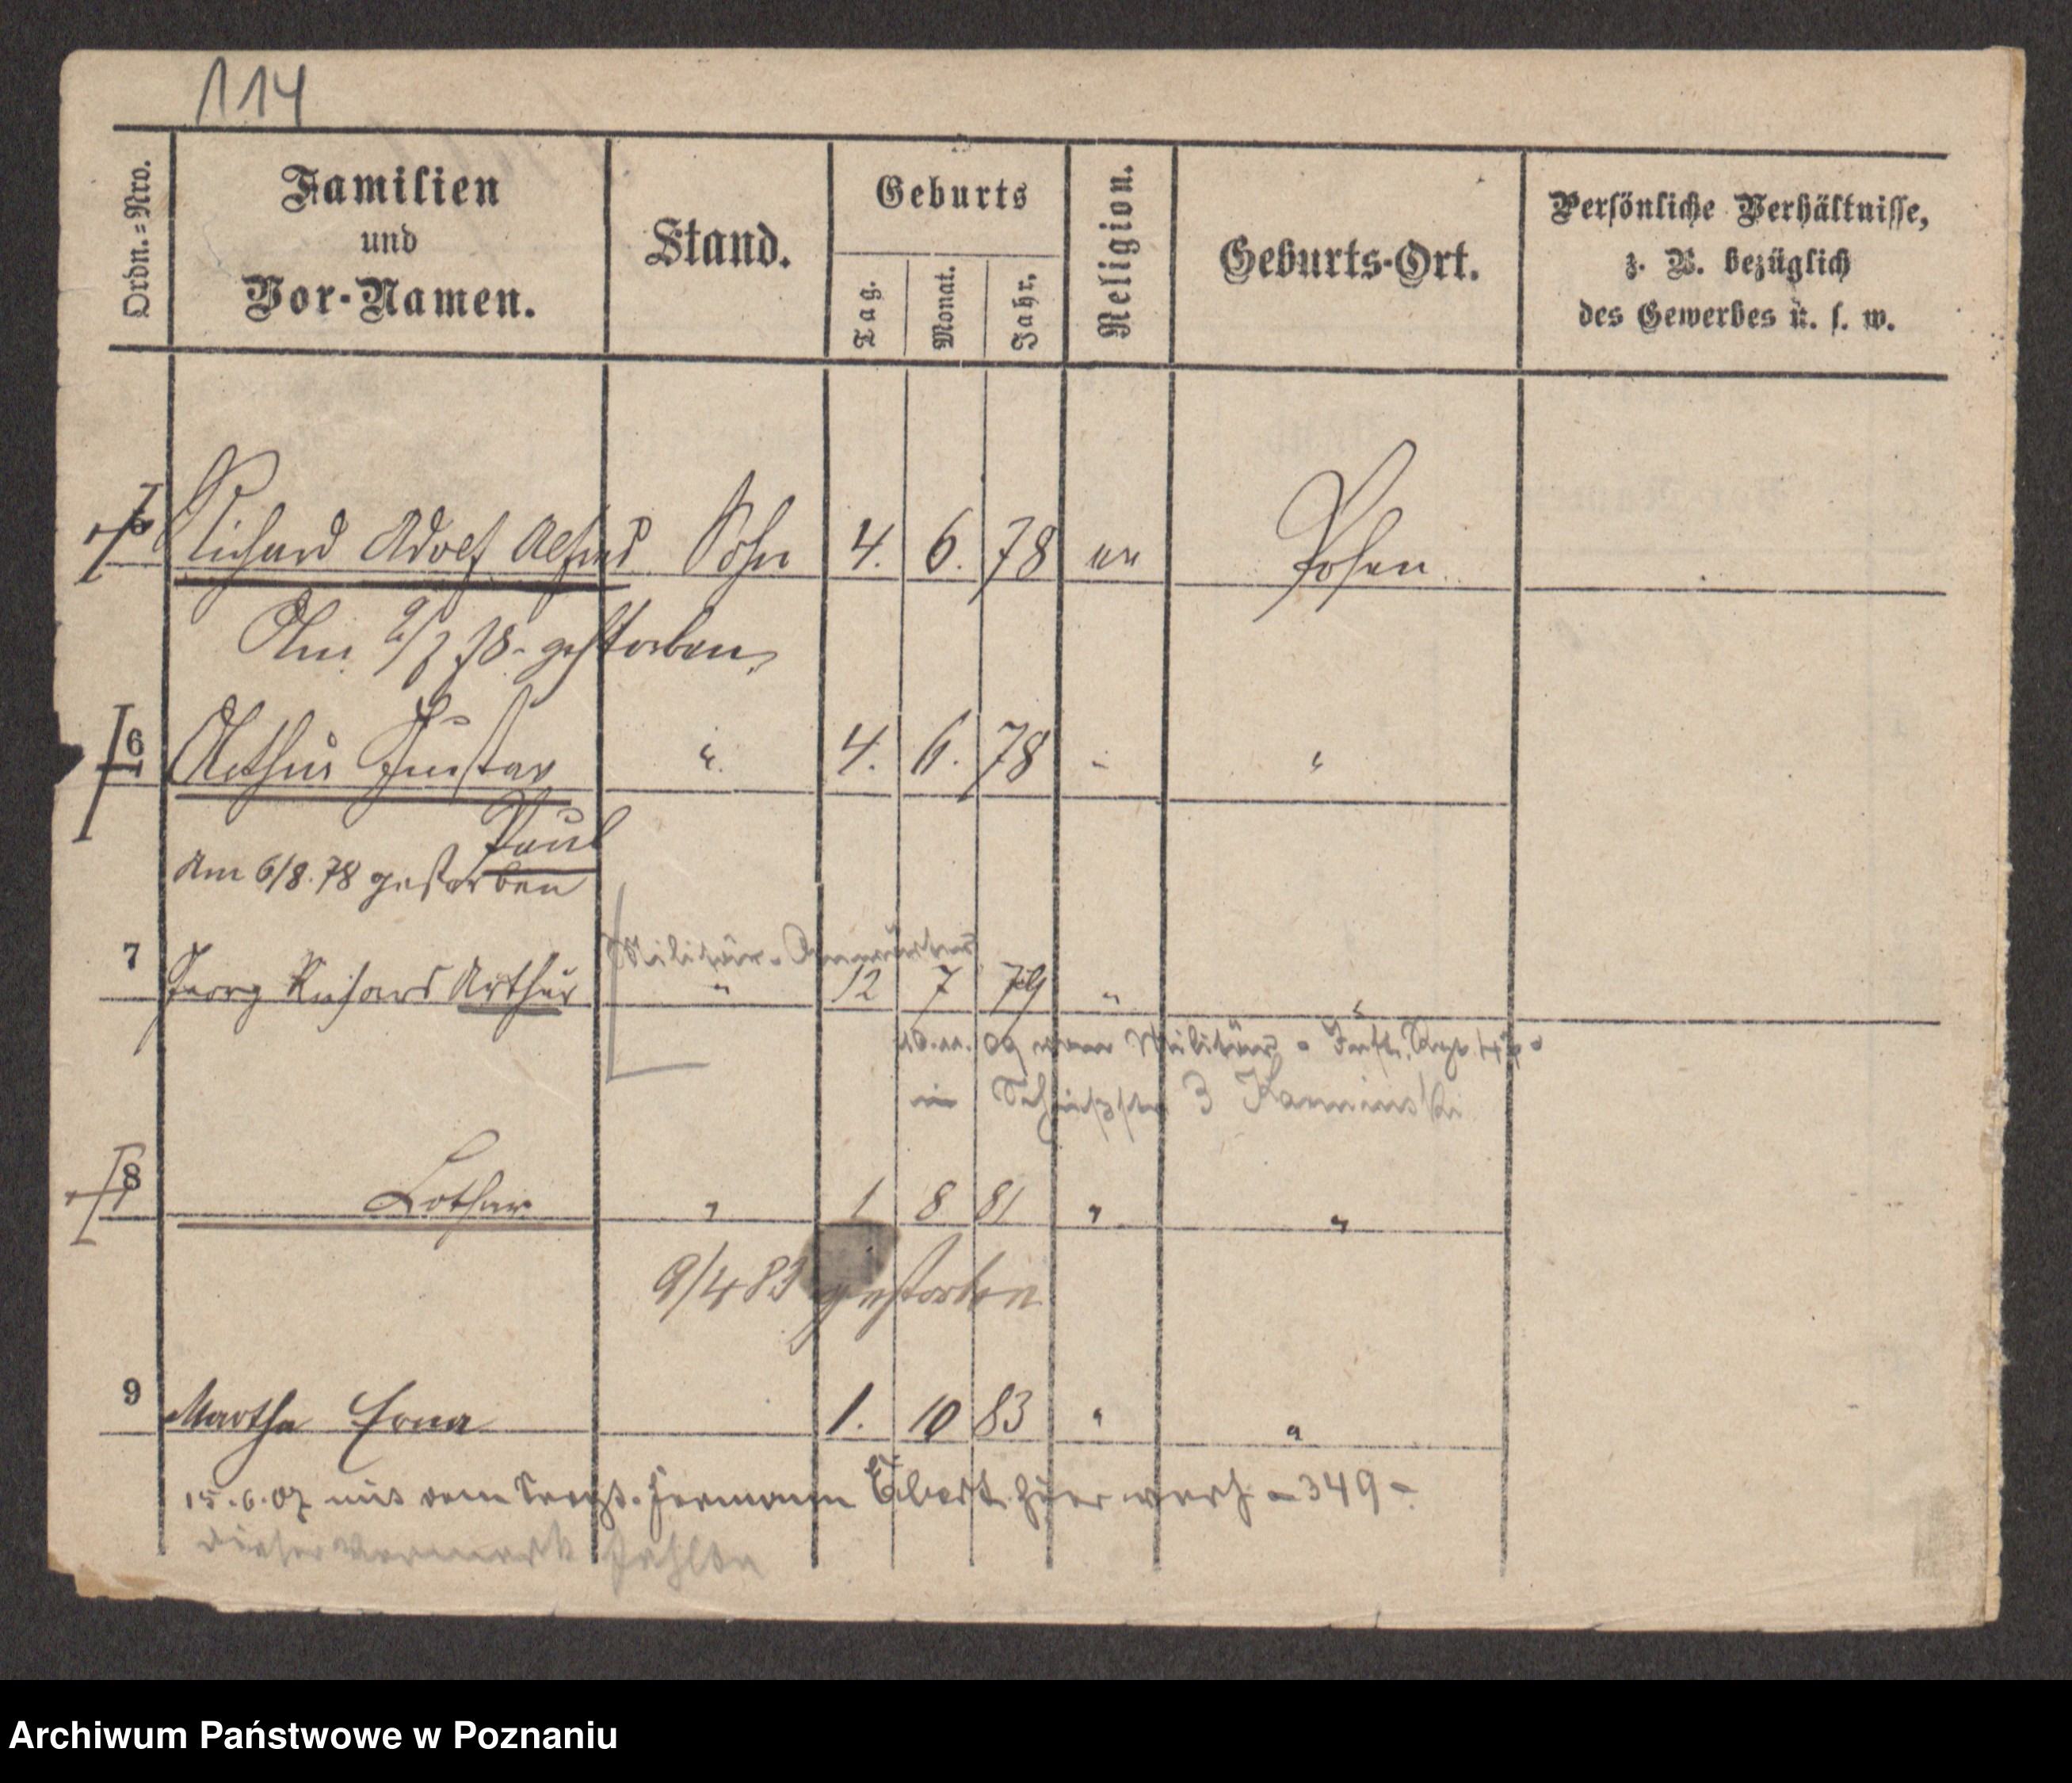 114
Ordn.=Nro.
Familien
und
Vor-Namen.
Stand.
Geburts
Tag.
Monat.
Jahr.
Religion.
Geburts-Ort.
Persönliche Verhältnisse,
z. B. bezüglich
des Gewerbes u. s. w.
Richard Adolf Alfred Sohn 4. 6. 78 Posen
Am 78 gestorben
6 Arthur Gustav " 4. 6. 78 " "
Paul
Am 6/8.78 gestorben
Militär-Anwärter
7 Georg Richard Arthur " 12 7 79 " "
09 Militär Inft. Rgt.
3 Kaminski
8 Lothar " 1 8 81 " "
9/4 83 gestorben
9 Martha Erna 1. 10 83 " "
15.6.07 mit dem Sergt. Hermann Eibert hier verh - 349 -
dieser Vermerk
Archiwum Państwowe w Poznaniu